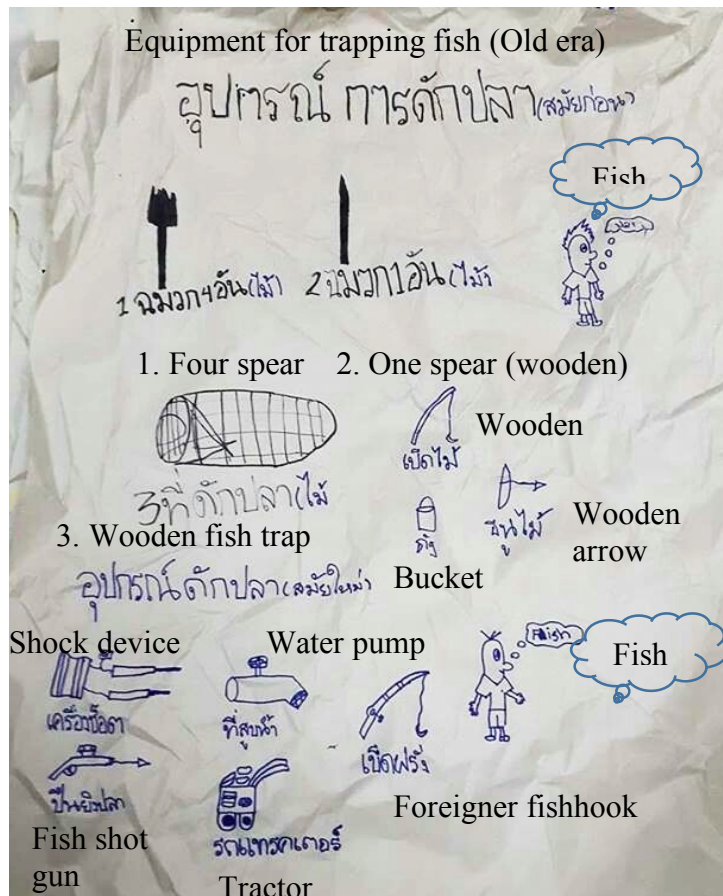 Equipment for trapping fish (Old era)
อุปกรณ์ การดักปลา (สมัยก่อน)
Fish
1 ฉมวก 4 อัน (ไม้) 2 ฉมวก 1 อัน (ไม้)
1. Four spear 2. One spear (wooden)
Wooden
เบ็ดไม้
3 ที่ดักปลา (ไม้
3. Wooden fish trap
ถัง
ธนูไม้
Wooden
arrow
Bucket
อุปกรณ์ดักปลา (สมัยใหม่)
Shock device Water pump
Fish
เครื่องช็อต
ที่สูบน้ำ
เบ็ดฝรั่ง
ปืนยิงปลา
Foreigner fishhook
รถแทรคเตอร์
Fish shot
gun
Tractor